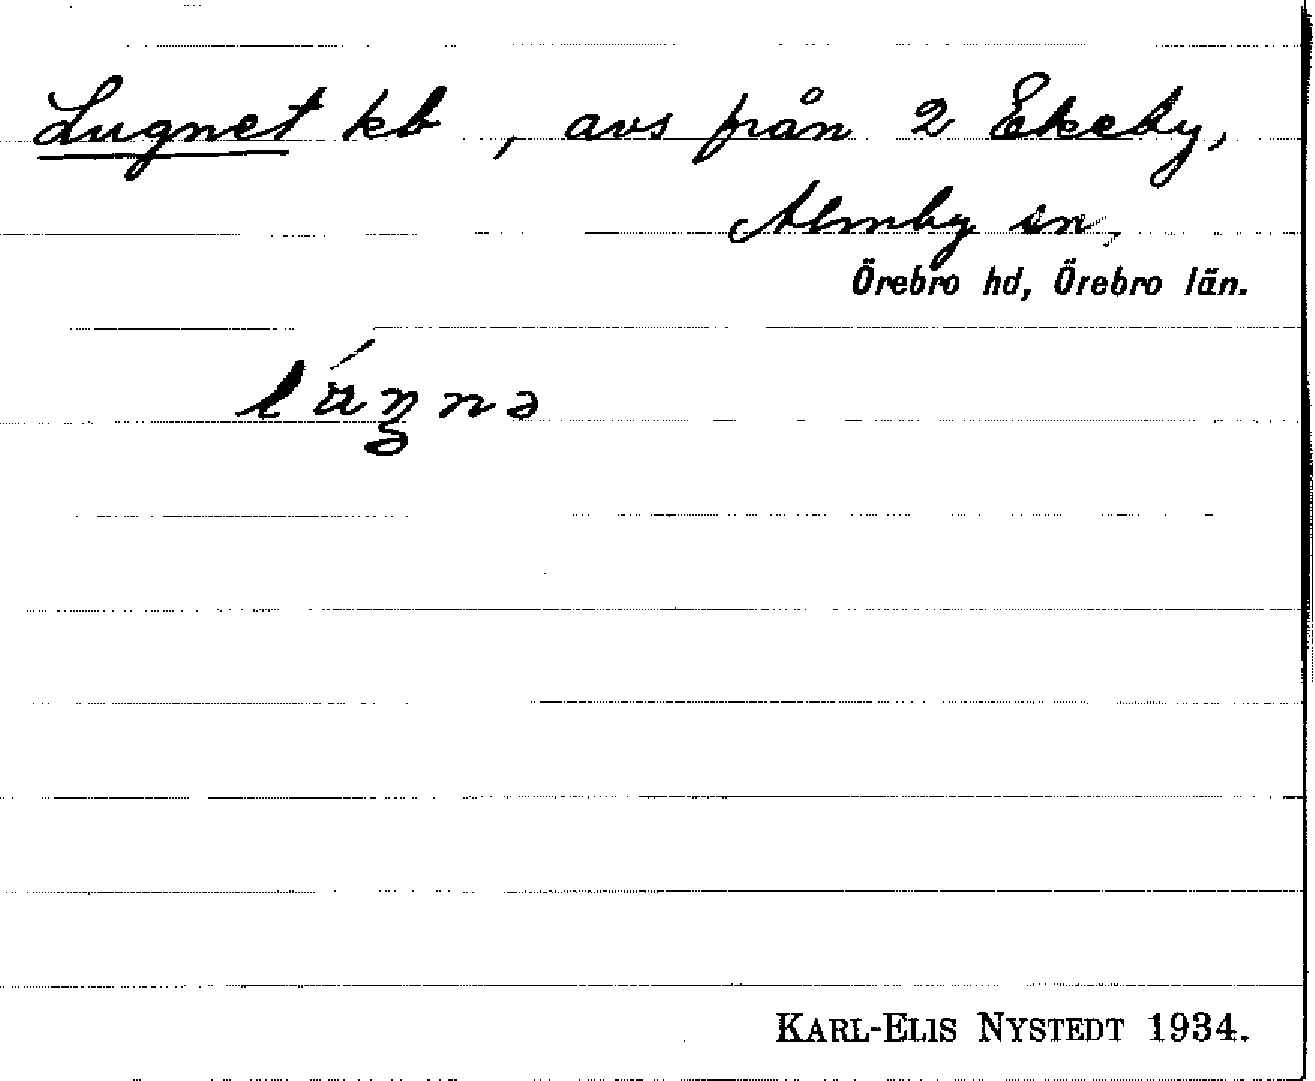 Lugnet kb, avs från 2 Ekeby,
Almby sn,
Örebro hd, Örebro län.
KARL-ELIS NYSTEDT 1934.